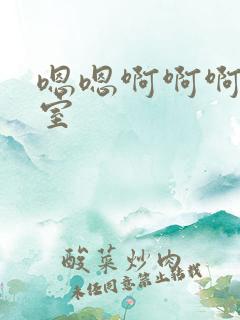 嗯嗯啊啊啊
室
酸菜炒肉
未经同意禁止转载